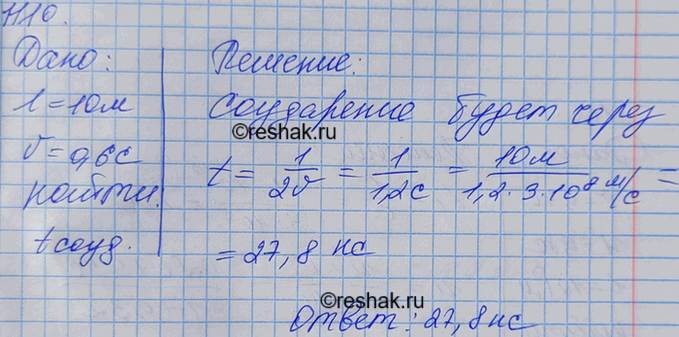 Н10.
Дано:
l = 10м
v = 0,6c
найти.
t соуд.
Решение:
соударение будет через
©reshak.ru
t = l/2v = l/1,2c = 10м/1,2·3·10⁸ м/с =
= 27,8 нс
©reshak.ru
Ответ: 27,8нс